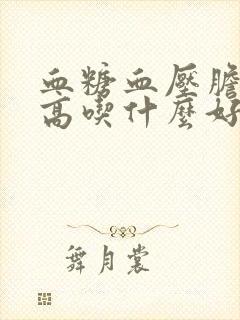 血糖血壓膽
高喫什麼好
舞月裳